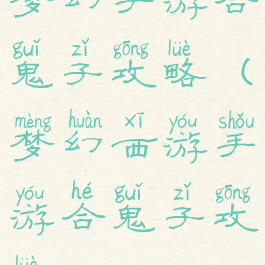 梦幻手游合
guǐ zǐ gōng lüè
鬼子攻略（
mèng huàn xī yóu shǒu
梦幻西游手
yóu hé guǐ zǐ gōng
游合鬼子攻
lüè